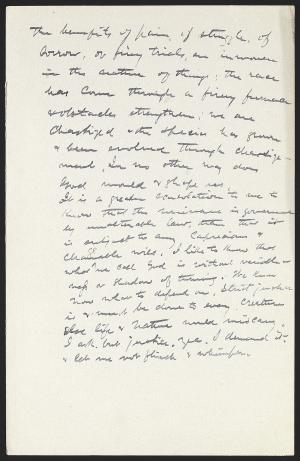 The benefits of pain, of struggle, of
sorrow, or fiery trials, are inwoven
in the nature of things; the race
has come through a fiery furnace
& obstacles strengthen; we are
chastized & the species has grown
& been evolved through chastize-
ment. In no other way does
God mould & shape us.
It is a greater consolation to me to
know that the universe is governed
by unalterable law, than that it
is subject to any capricious &
changable will. I like to know that
what we call God is without variable-
ness or shadow of turning. We know
now what to depend on. Strict justice
is & must be done to every creature
else life & nature would miscarry.
I ask but justice, yea, I demand it
& let me not flinch & whimper.